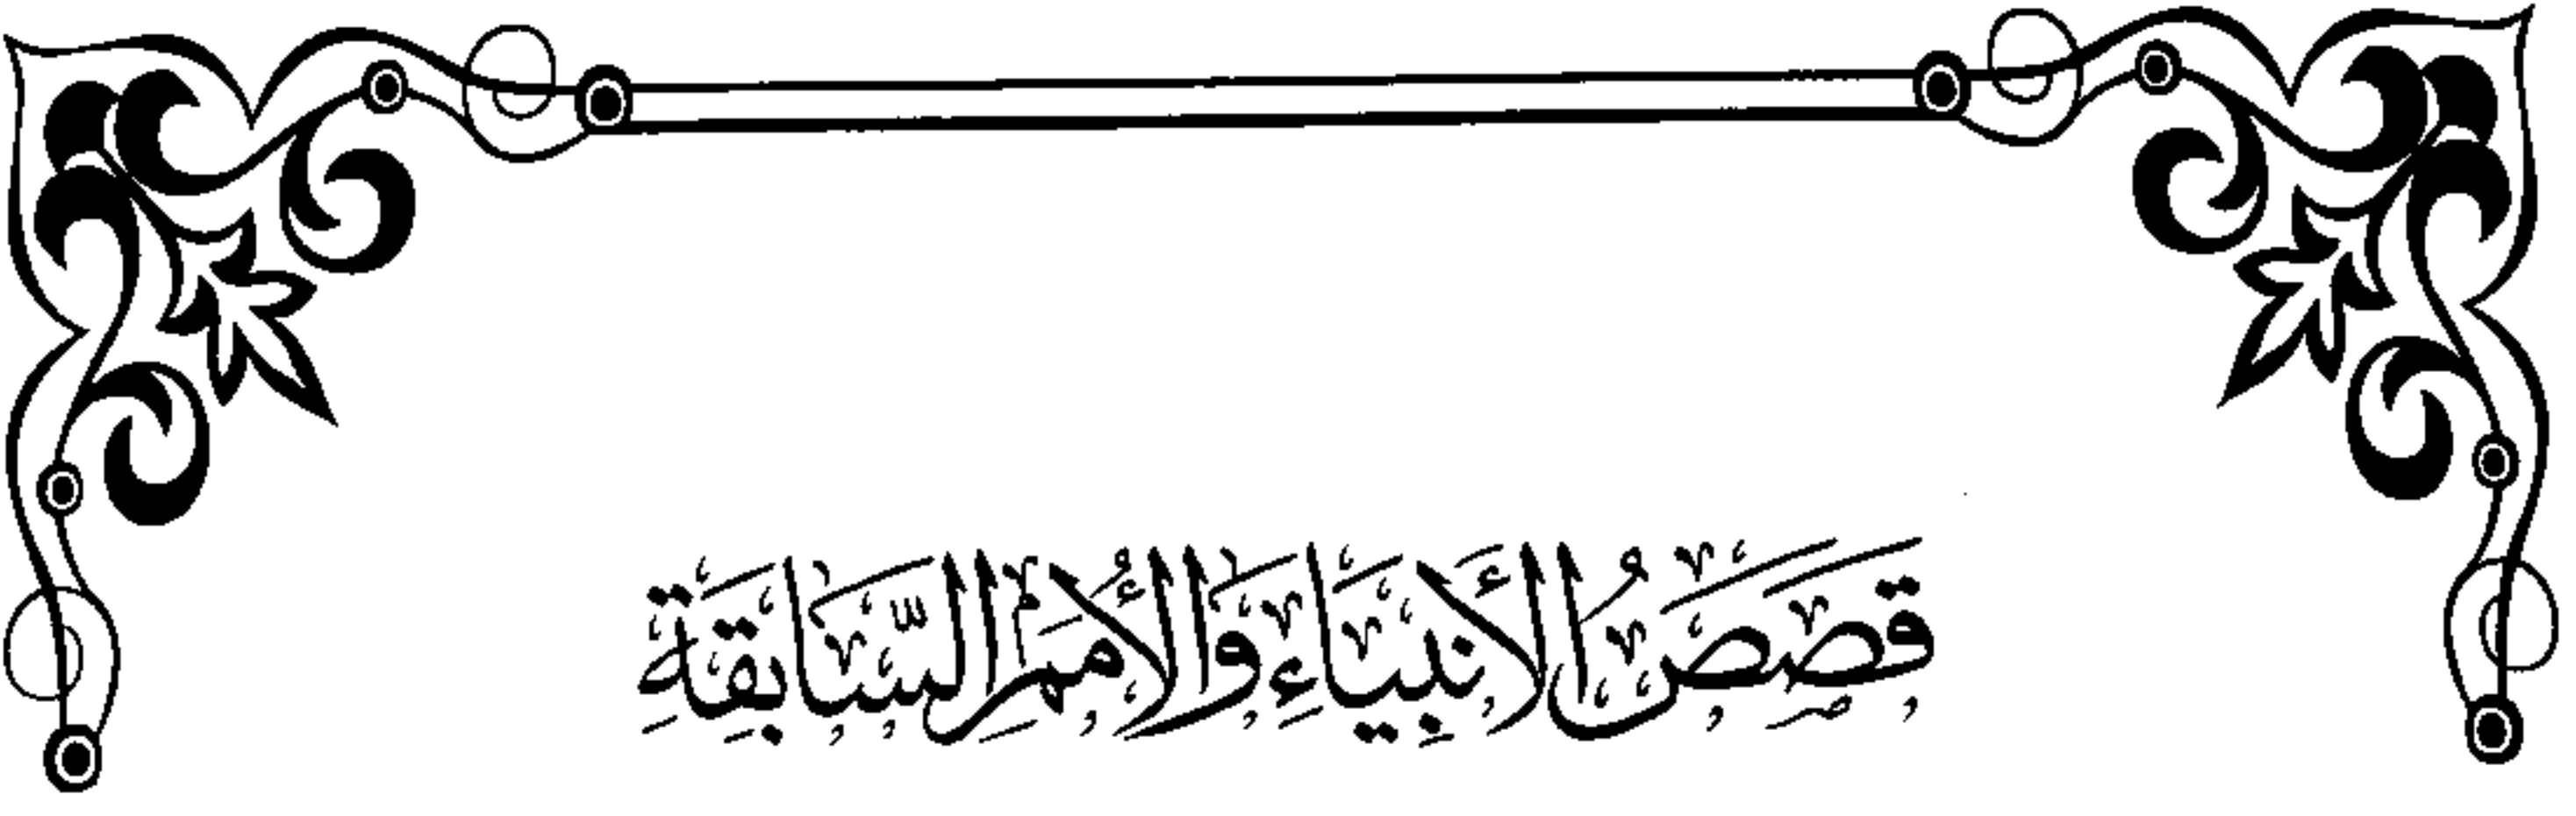 قَصَصُ الْأَنْبِيَاءِ وَالْأُمَمِ السَّابِقَةِ